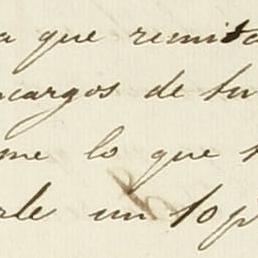 a que remita
ncargos de su
me lo que
rle un 10 p